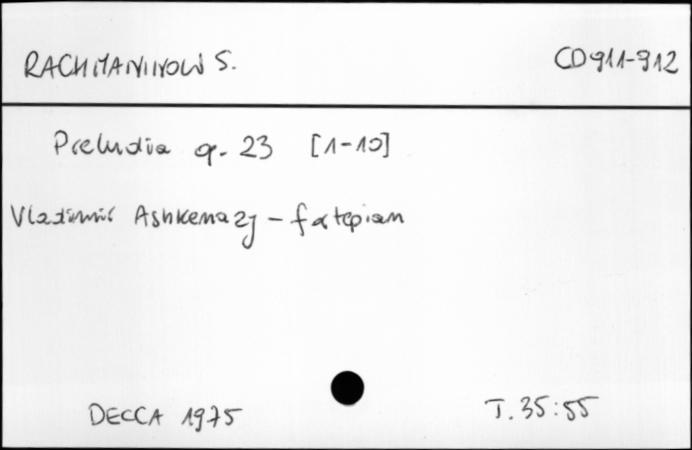 RACHMANINOW S. CD 911-912
Preludia op. 23 [1-10]
Vladimir Ashkenazy - fortepian
DECCA 1975 T. 35:55